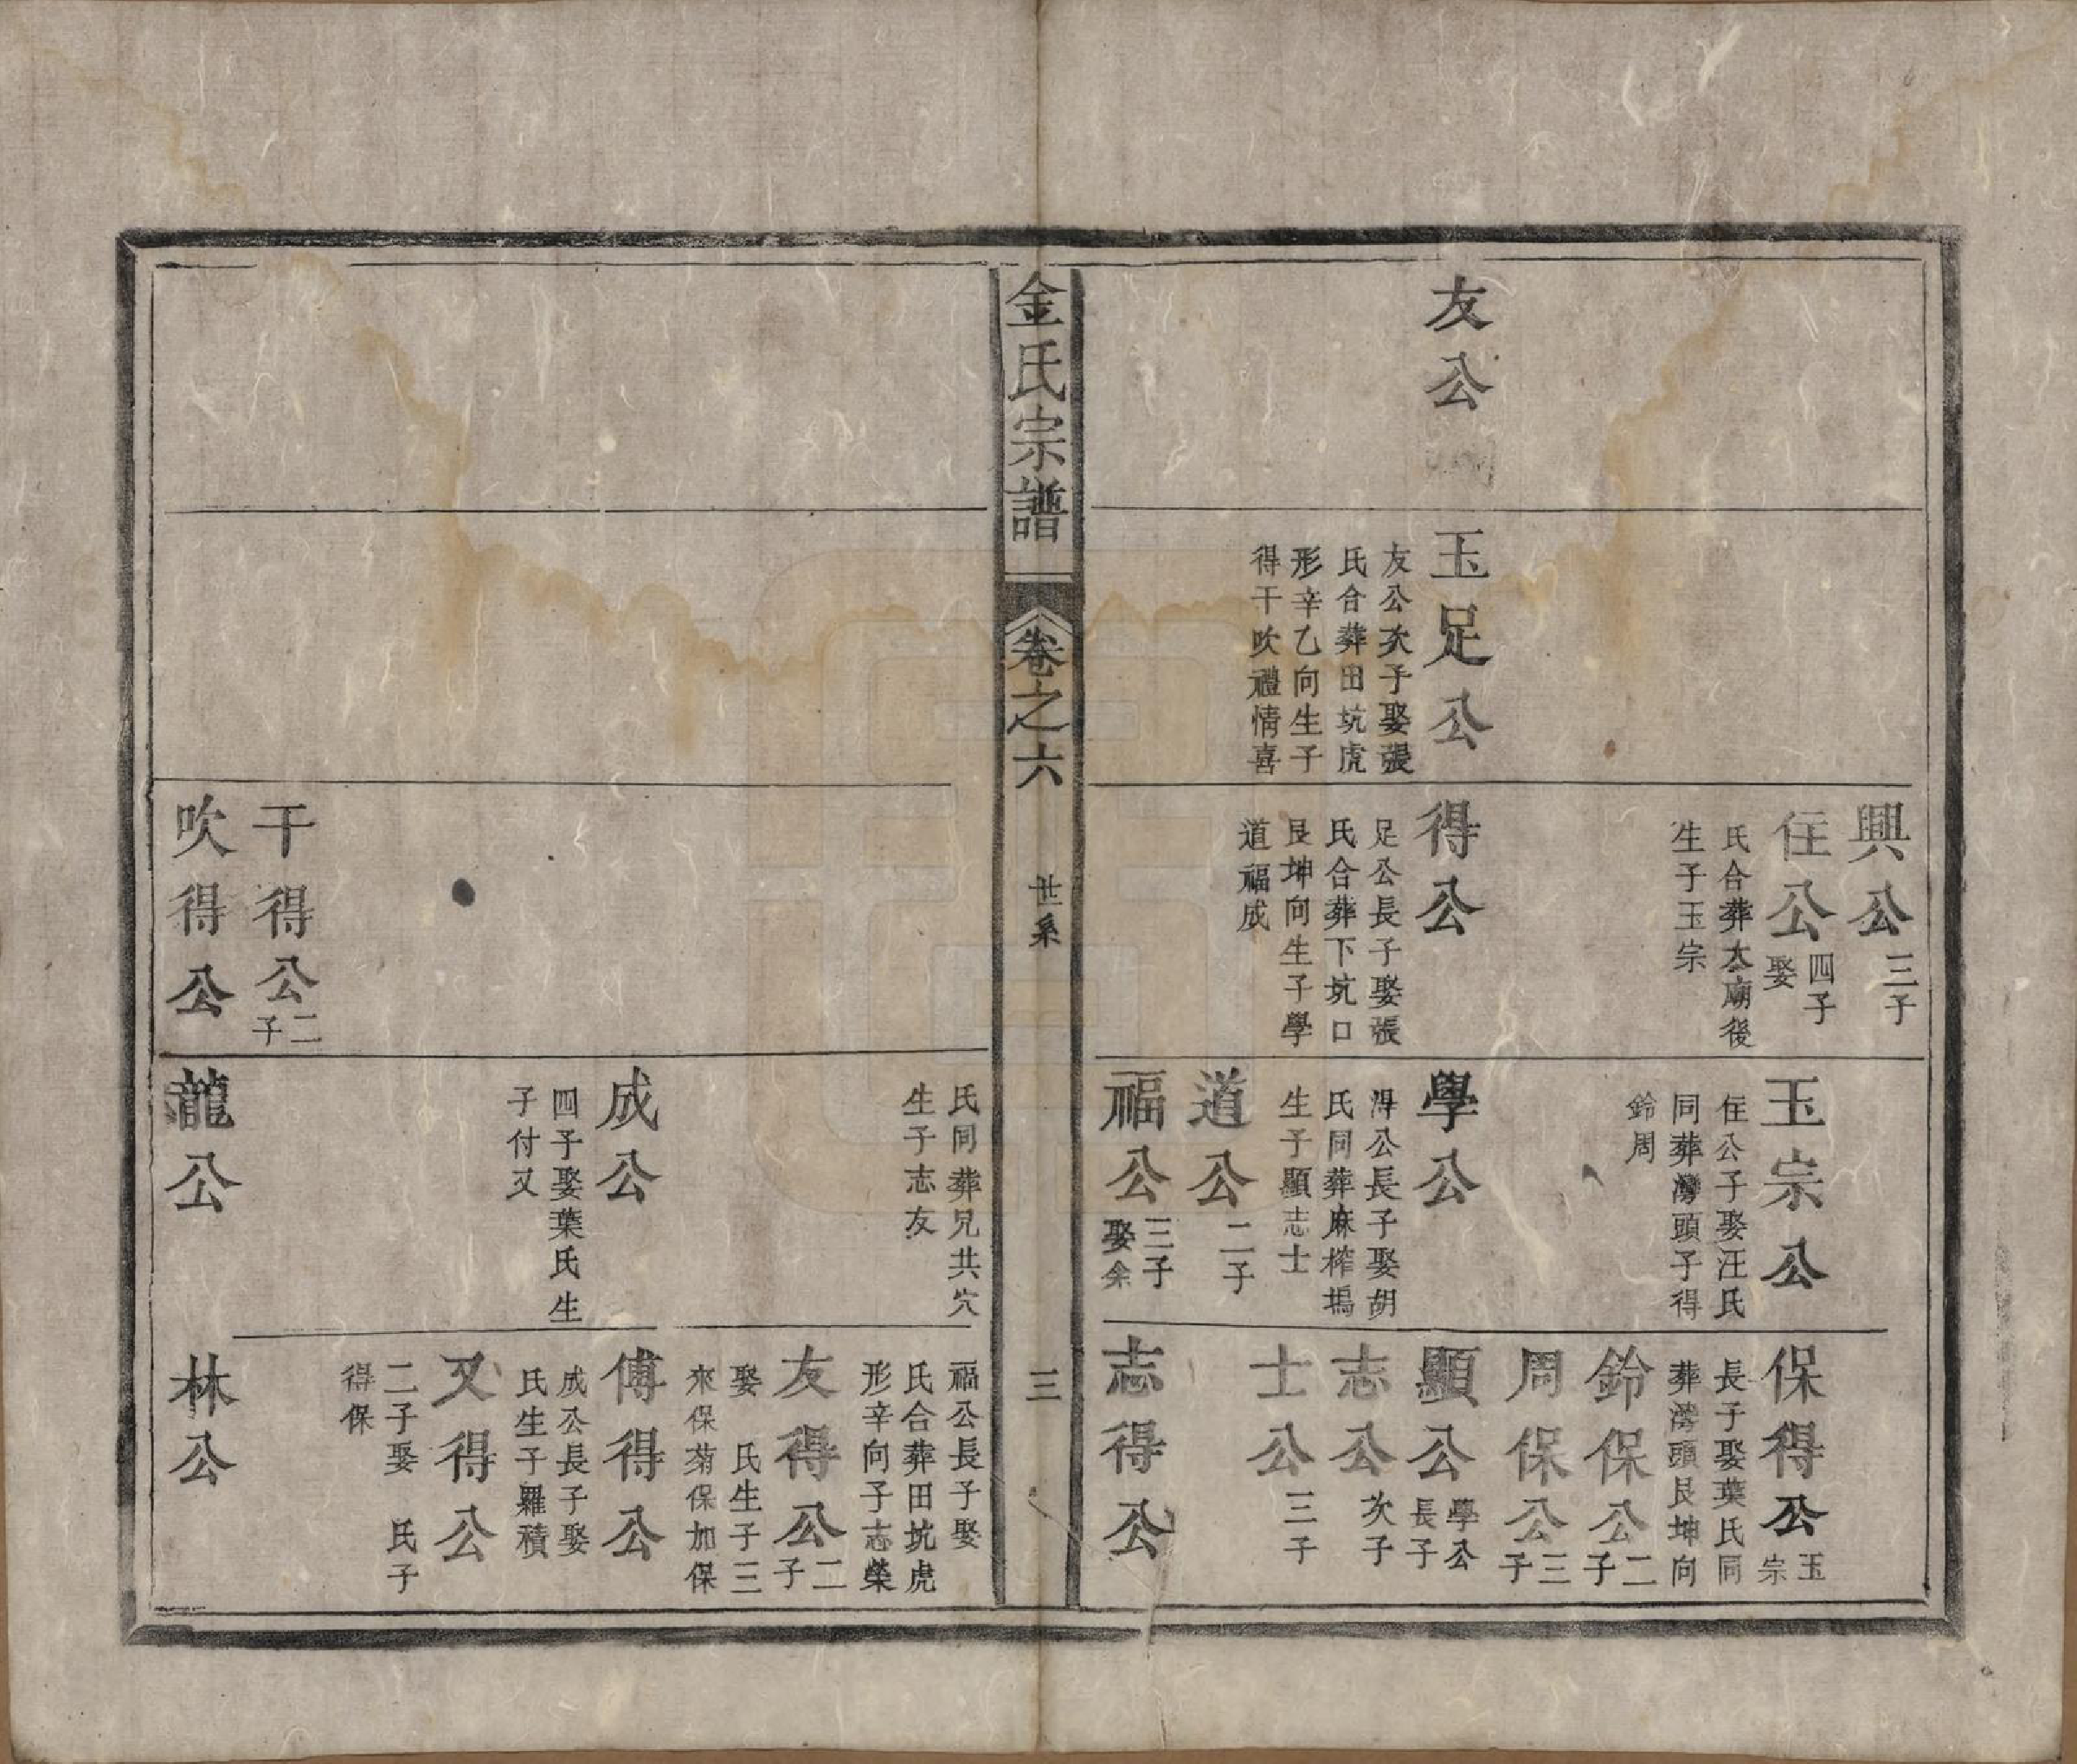 友公
玉足公
友公次子娶張
氏合葬田坑虎
形辛乙向生子
得干吹禮情喜
興公三子
住公四子娶
氏合葬太廟後
生子玉宗
得公
足公長子娶張
氏合葬下坑口
艮坤向生子學
道福成
玉宗公
住公子娶汪氏
同葬灣頭子得
鈴周
學公
得公長子娶胡
氏同葬麻榨塢
生子顯志士
道公二子
福公三子娶余
保得公玉宗
長子娶葉氏同
葬灣頭艮坤向
鈴保公二子
周保公三子
顯公學公長子
志公次子
士公三子
志得公
金氏宗譜
卷之六
世系
三
干得公二子
吹得公
氏同葬兄共穴
生子志友
成公
四子娶葉氏生
子付又
龍公
福公長子娶
氏合葬田坑虎
形辛向子志榮
友得公二子
娶 氏生子三
來保菊保加保
傅得公
成公長子娶
氏生子羅積
又得公
二子娶 氏子
得保
林公